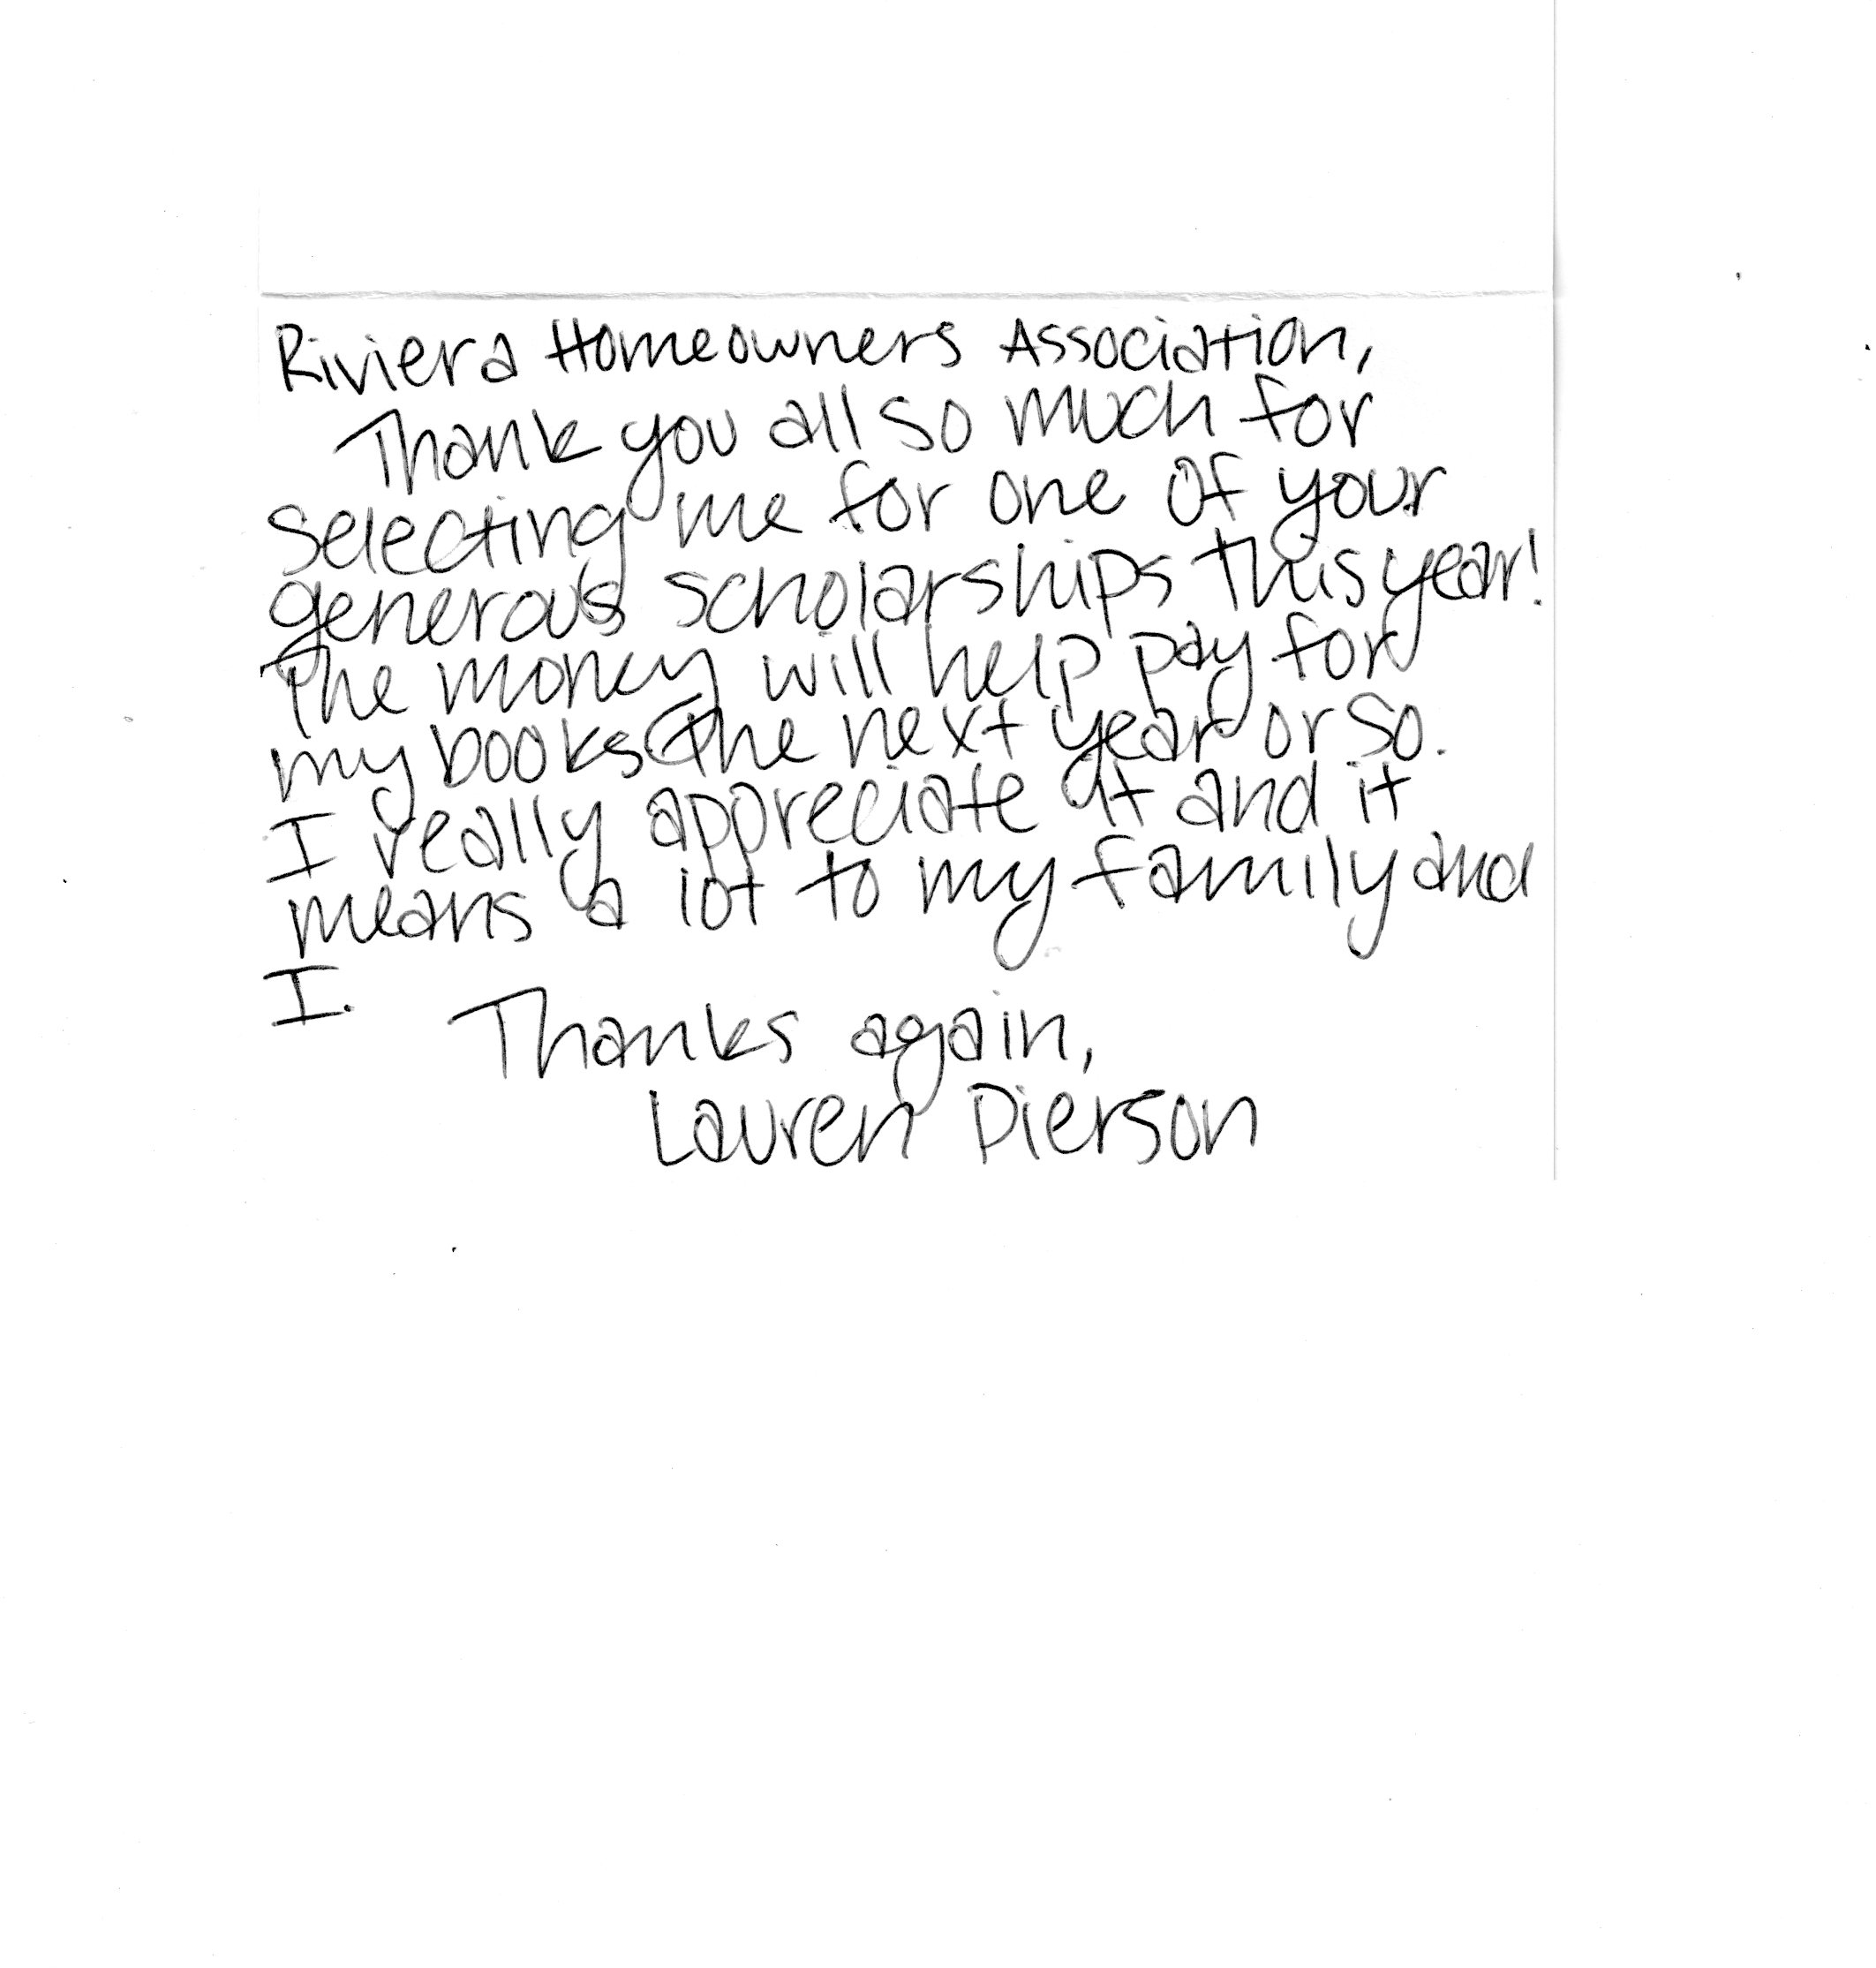 Riviera Homeowners Association,
Thank you all so much for
selecting me for one of your
generous scholarships this year!
The money will help pay for
my books the next year or so.
I really appreciate it and it
means a lot to my family and
I.
Thanks again,
Lauren Pierson